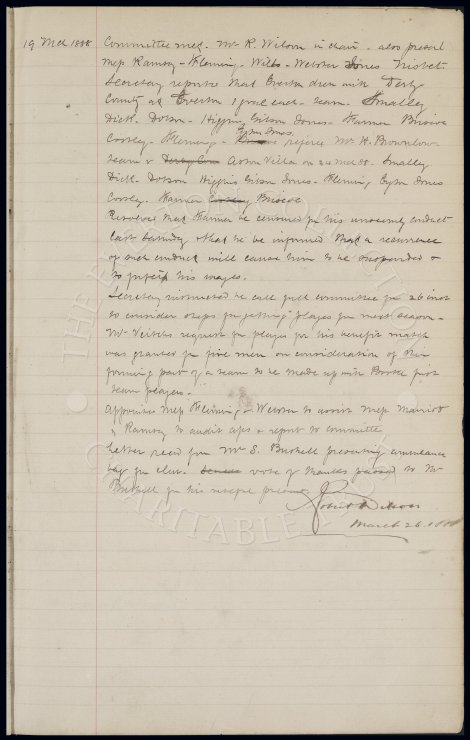 19 Mch 1888 Committee met. Mr R. Wilson in chair. also present
Mess Ramsay - Fleming - Wills - Webster Jones Nisbet
Secretary reported that Everton drew with Derby
County at Everton 1 goal each - team. Smalley
Dick. Dobson - Higgins Gibson Jones. Farmer Briscoe
Costley - Fleming - Izon Jones. referee Mr H. Brownlow
team v Derby Coun Aston Villa on 24 March. Smalley
Dick. Dobson Higgins Gibson Jones - Fleming Izon Jones
Costley. Farmer Costley Briscoe
Resolved that Farmer be censured for his unseemly conduct
last Saturday & that he be informed that a recurrence
of such conduct will cause him to be suspended &
to forfeit his wages.
Secretary instructed to call full committee for 26 inst
to consider steps for getting players for next season -
Mr request for players for his benefit match
was granted for five men on consideration of their
forming part of a team to be made up with Bootle first
team players.
Appointed Mess Fleming & Webster to assist Mess Marriott
& Ramsay to audit a/cs & report to committee
Letter read from Mr S. presenting ambulance
bag for club. vote of thanks passed to Mr
for his present
Robert Wilson
March 26. 1888
THE EVERTON
CHARITABLE TRUST